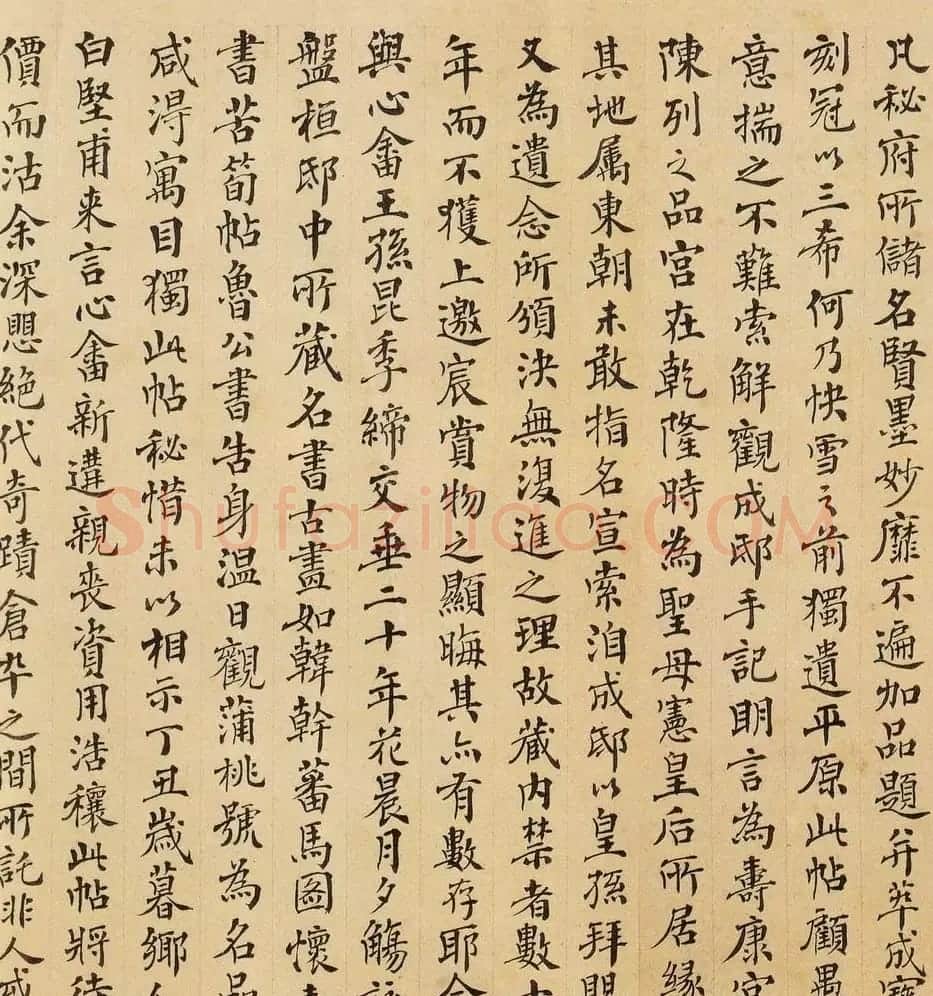 凡秘府所儲名賢墨妙靡不遍加品題并萃成寶
刻冠以三希何乃快雪之前獨遺平原此帖顧愚
意揣之不難索解觀成邸手記明言為壽康宮
陳列之品宮在乾隆時為聖母憲皇后所居緣
其地屬東朝未敢指名宣索洎成邸以皇孫拜
又為遺念所頒決無復進之理故藏內禁者數
年而不獲上邀宸賞物之顯晦其亦有數存耶余
與心畬王孫昆季締交垂二十年花晨月夕觴詠
盤桓邸中所藏名書古畫如韓幹蕃馬圖懷素
書苦筍帖魯公書告身溫日觀蒲桃號為名品
咸得寓目獨此帖秘惜未以相示丁丑歲暮鄉
白堅甫来言心畬新遘親喪資用浩穰此帖將待
價而沽余深懼絕代奇蹟倉卒之間所託非人或
Shufaziliao.COM